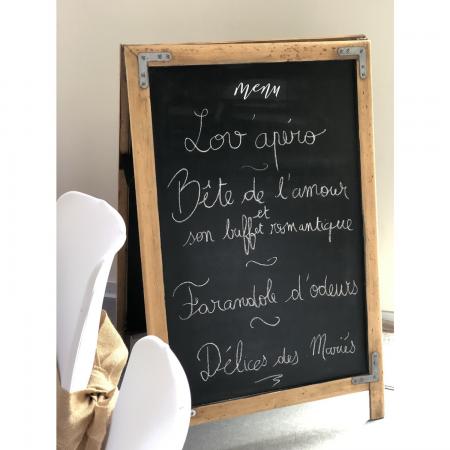 menu
Lov'apéro
Bête de l'amour
et
son buffet romantique
Farandole d'odeurs
Délices des Mariés